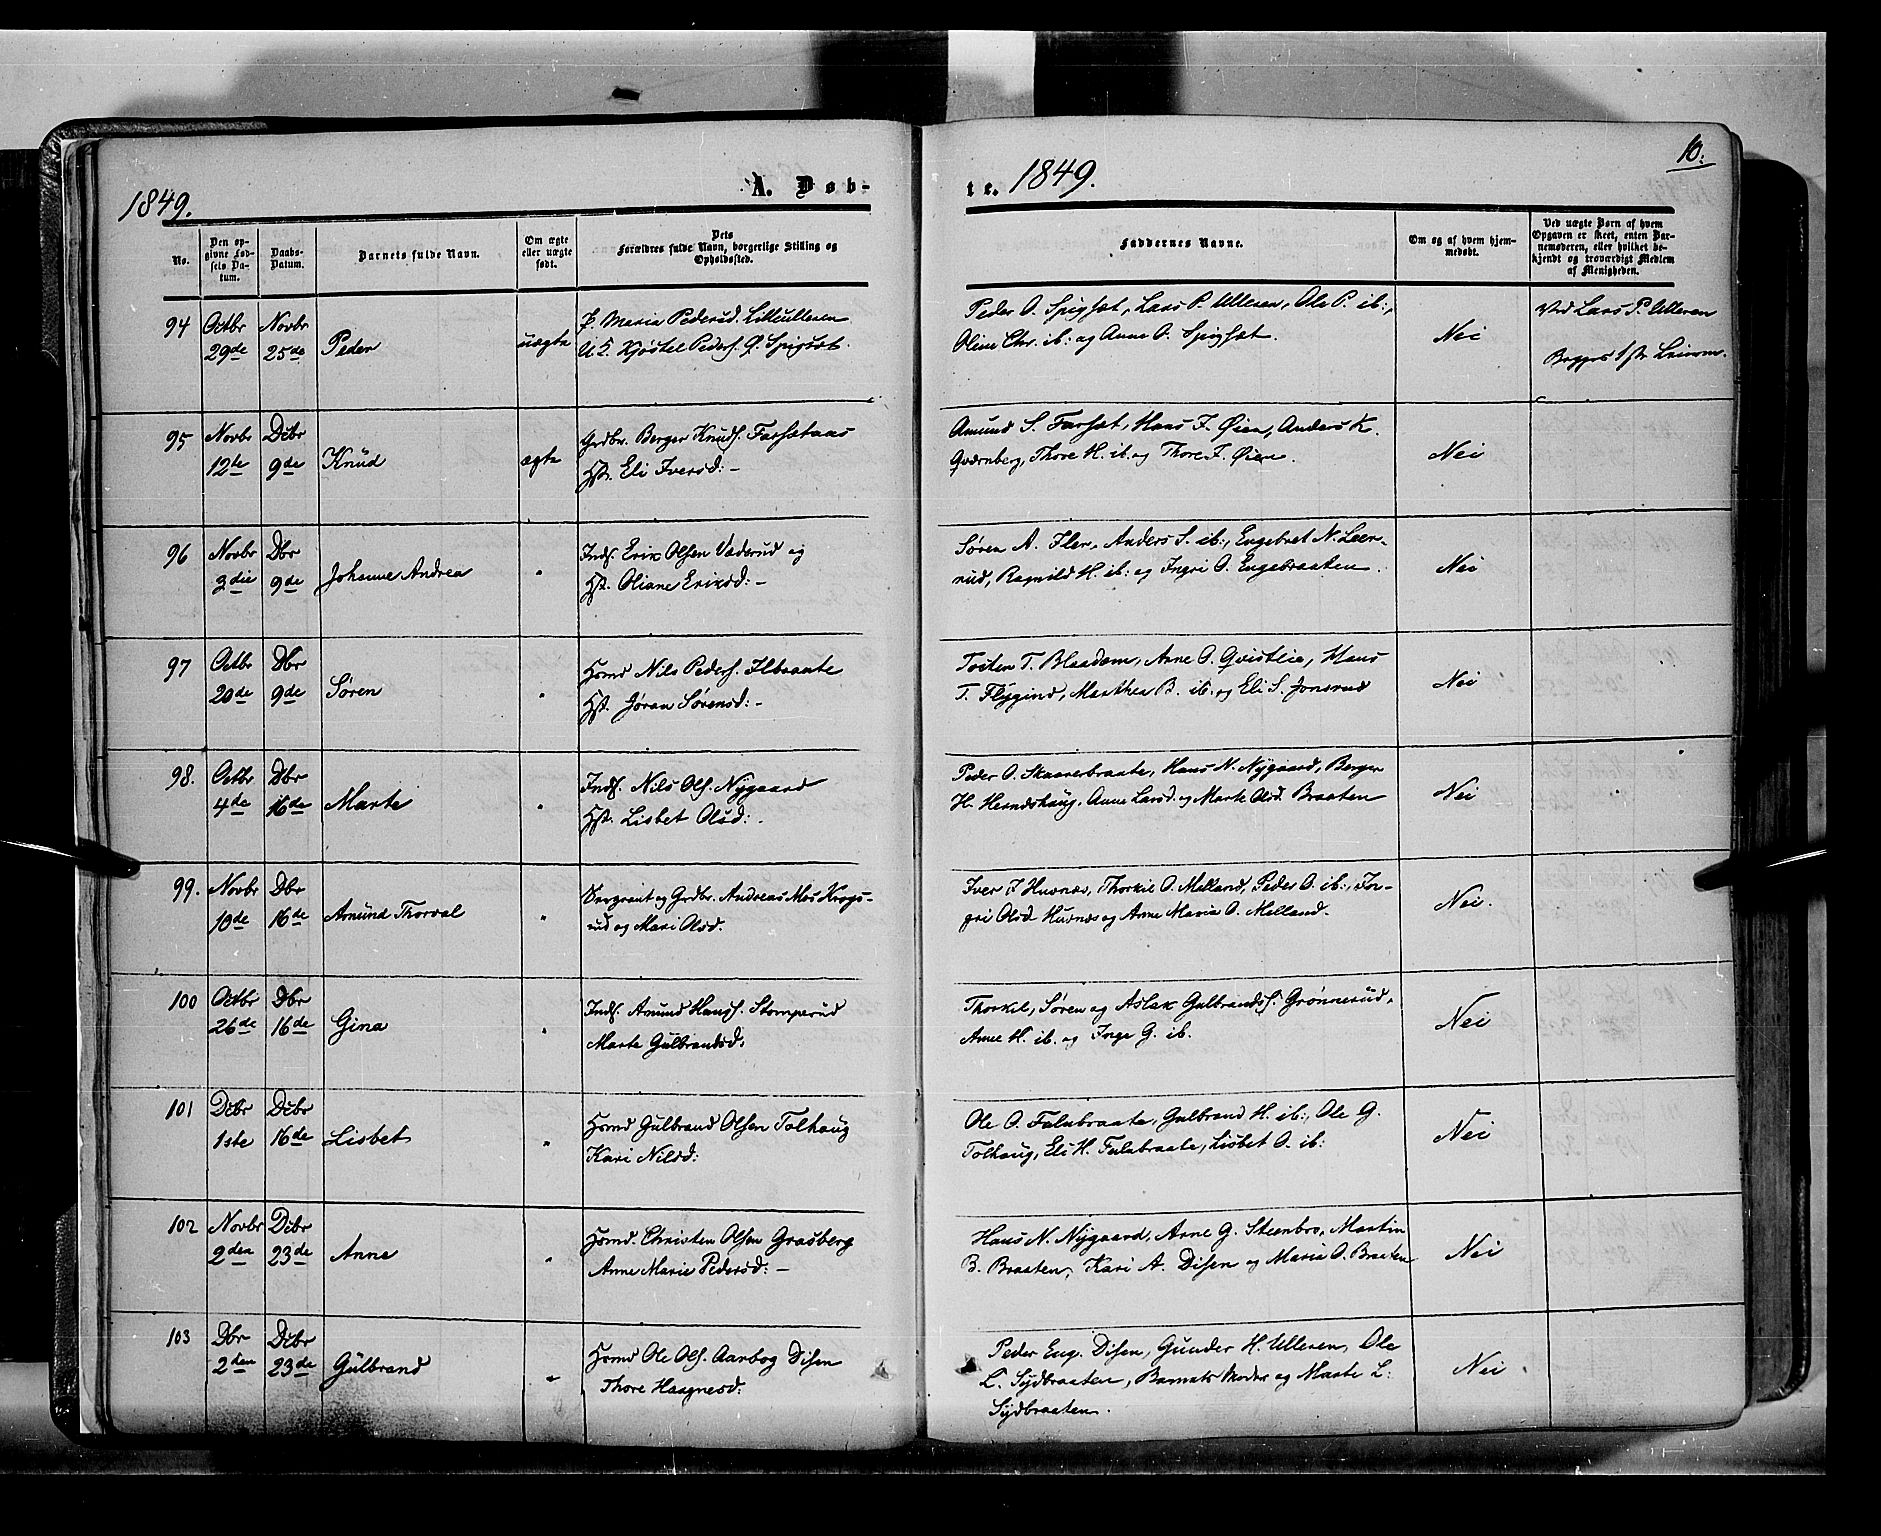 1849.
A. Døb-
te. 1849.
10.
No.
Den op-
givne Fød-
sels Da-
tum.
Daabs-
Datum.
Barnets fulde Navn.
Om ægte
eller uægte
født.
Dets
Forældres fulde Navn, borgerlige Stilling og
Opholdssted.
Faddernes Navne.
Om og af hvem hjem-
medøbt.
Ved uægte Børn af hvem
Opgaven er skeet, enten Bar-
nemoderen, eller hvilket be-
kjendt og troværdigt Medlem
af Menigheden.
94 Octbr 29de Novbr 25de Peder uægte
P. Maria Pedersd. Lilleulleren
U.K. Kjøstel Peders. Ø. Spigsæt.
Peder O. Spigsæt, Lars P. Ulleren, Ole P. ib:,
Oline Chr. ib: og Anne O. Spigsæt.
Nei
Ved Lars P. Ulleren
Begges 1ste Leierm.
95 Novbr 12te Dcbr 9de Knud ægte
Grdbr. Berger Knuds. Farsætaas
Hst. Eli Iversd: -
Amund S. Farsæt, Hans J. Øien, Anders K.
Qværnberg, Thore H. ib. og Thore J. Øien.
Nei
96 Novbr 3die Dbr 9de Johanne Andrea "
Inds. Erik Olsen Væderud og
Hst. Oliane Eriksd: -
Søren A. Fler, Anders S. ib:, Engebret N. Leer-
rud, Ragnild H. ib: og Ingri O. Engebraaten.
Nei
97 Octbr 20de Dbr 9de Søren "
Hsmd Nils Peders. Ilbraate
Hst. Jøran Sørensd: -
Tosten T. Blaadom, Arne O. Qvistlie, Hans
T. Flygind, Marthea B. ib: og Eli S. Jonsrud
Nei
98. Octbr 4de Dbr 16de Marte "
Inds. Nils Ols. Nygaard
Hst. Lisbet Olsd: -
Peder O. Skaarerbraate, Hans N. Nygaard, Berger
H. Herndshaug, Anne Larsd. og Marte Olsd. Braaten
Nei
99. Novbr 10de Dbr 16de Amund Thorval "
Sergeant og Grdbr. Andreas Mos Krogs-
rud og Mari Olsd.
Iver J Husnæs, Thorkil O. Melland, Peder O. ib:, In-
gri Olsd. Husnæs og Anne Maria O. Melland.
Nei.
100 Octbr 26de Dbr 16de Gina "
Inds. Amund Hans. Stomperud
Marte Gulbrandsd.
Thorkil, Søren og Aslak Gulbrands. Grønnerud,
Anne H. ib. og Inge G. ib.
Nei
101 Dcbr 1ste Dcbr 16de Lisbet "
Hsmd Gulbrand Olsen Tolhaug
Kari Nilsd:
Ole O. Falubraate, Gulbrand H. ib:, Ole G.
Tolhaug, Eli H. Falubraate, Lisbet O. ib:
Nei
102 Novbr 2den Dcbr 23de Anne "
Hsmd. Christen Olsen Grasberg
Anne Marie Pedersd: -
Hans N. Nygaard, Arne G. Steenbro, Martin
B. Braaten, Kari A. Disen og Maria O. Braaten
Nei
103 Dbr 2den Dcbr 23de Gulbrand "
Hsmd Ole Ols. Aarbog Disen
Thore Haagnesd:
Peder Eng. Disen, Gunder H. Ulleren, Ole
L. Sydbraaten, Barnets Moder og Marte L:
Sydbraaten.
Nei